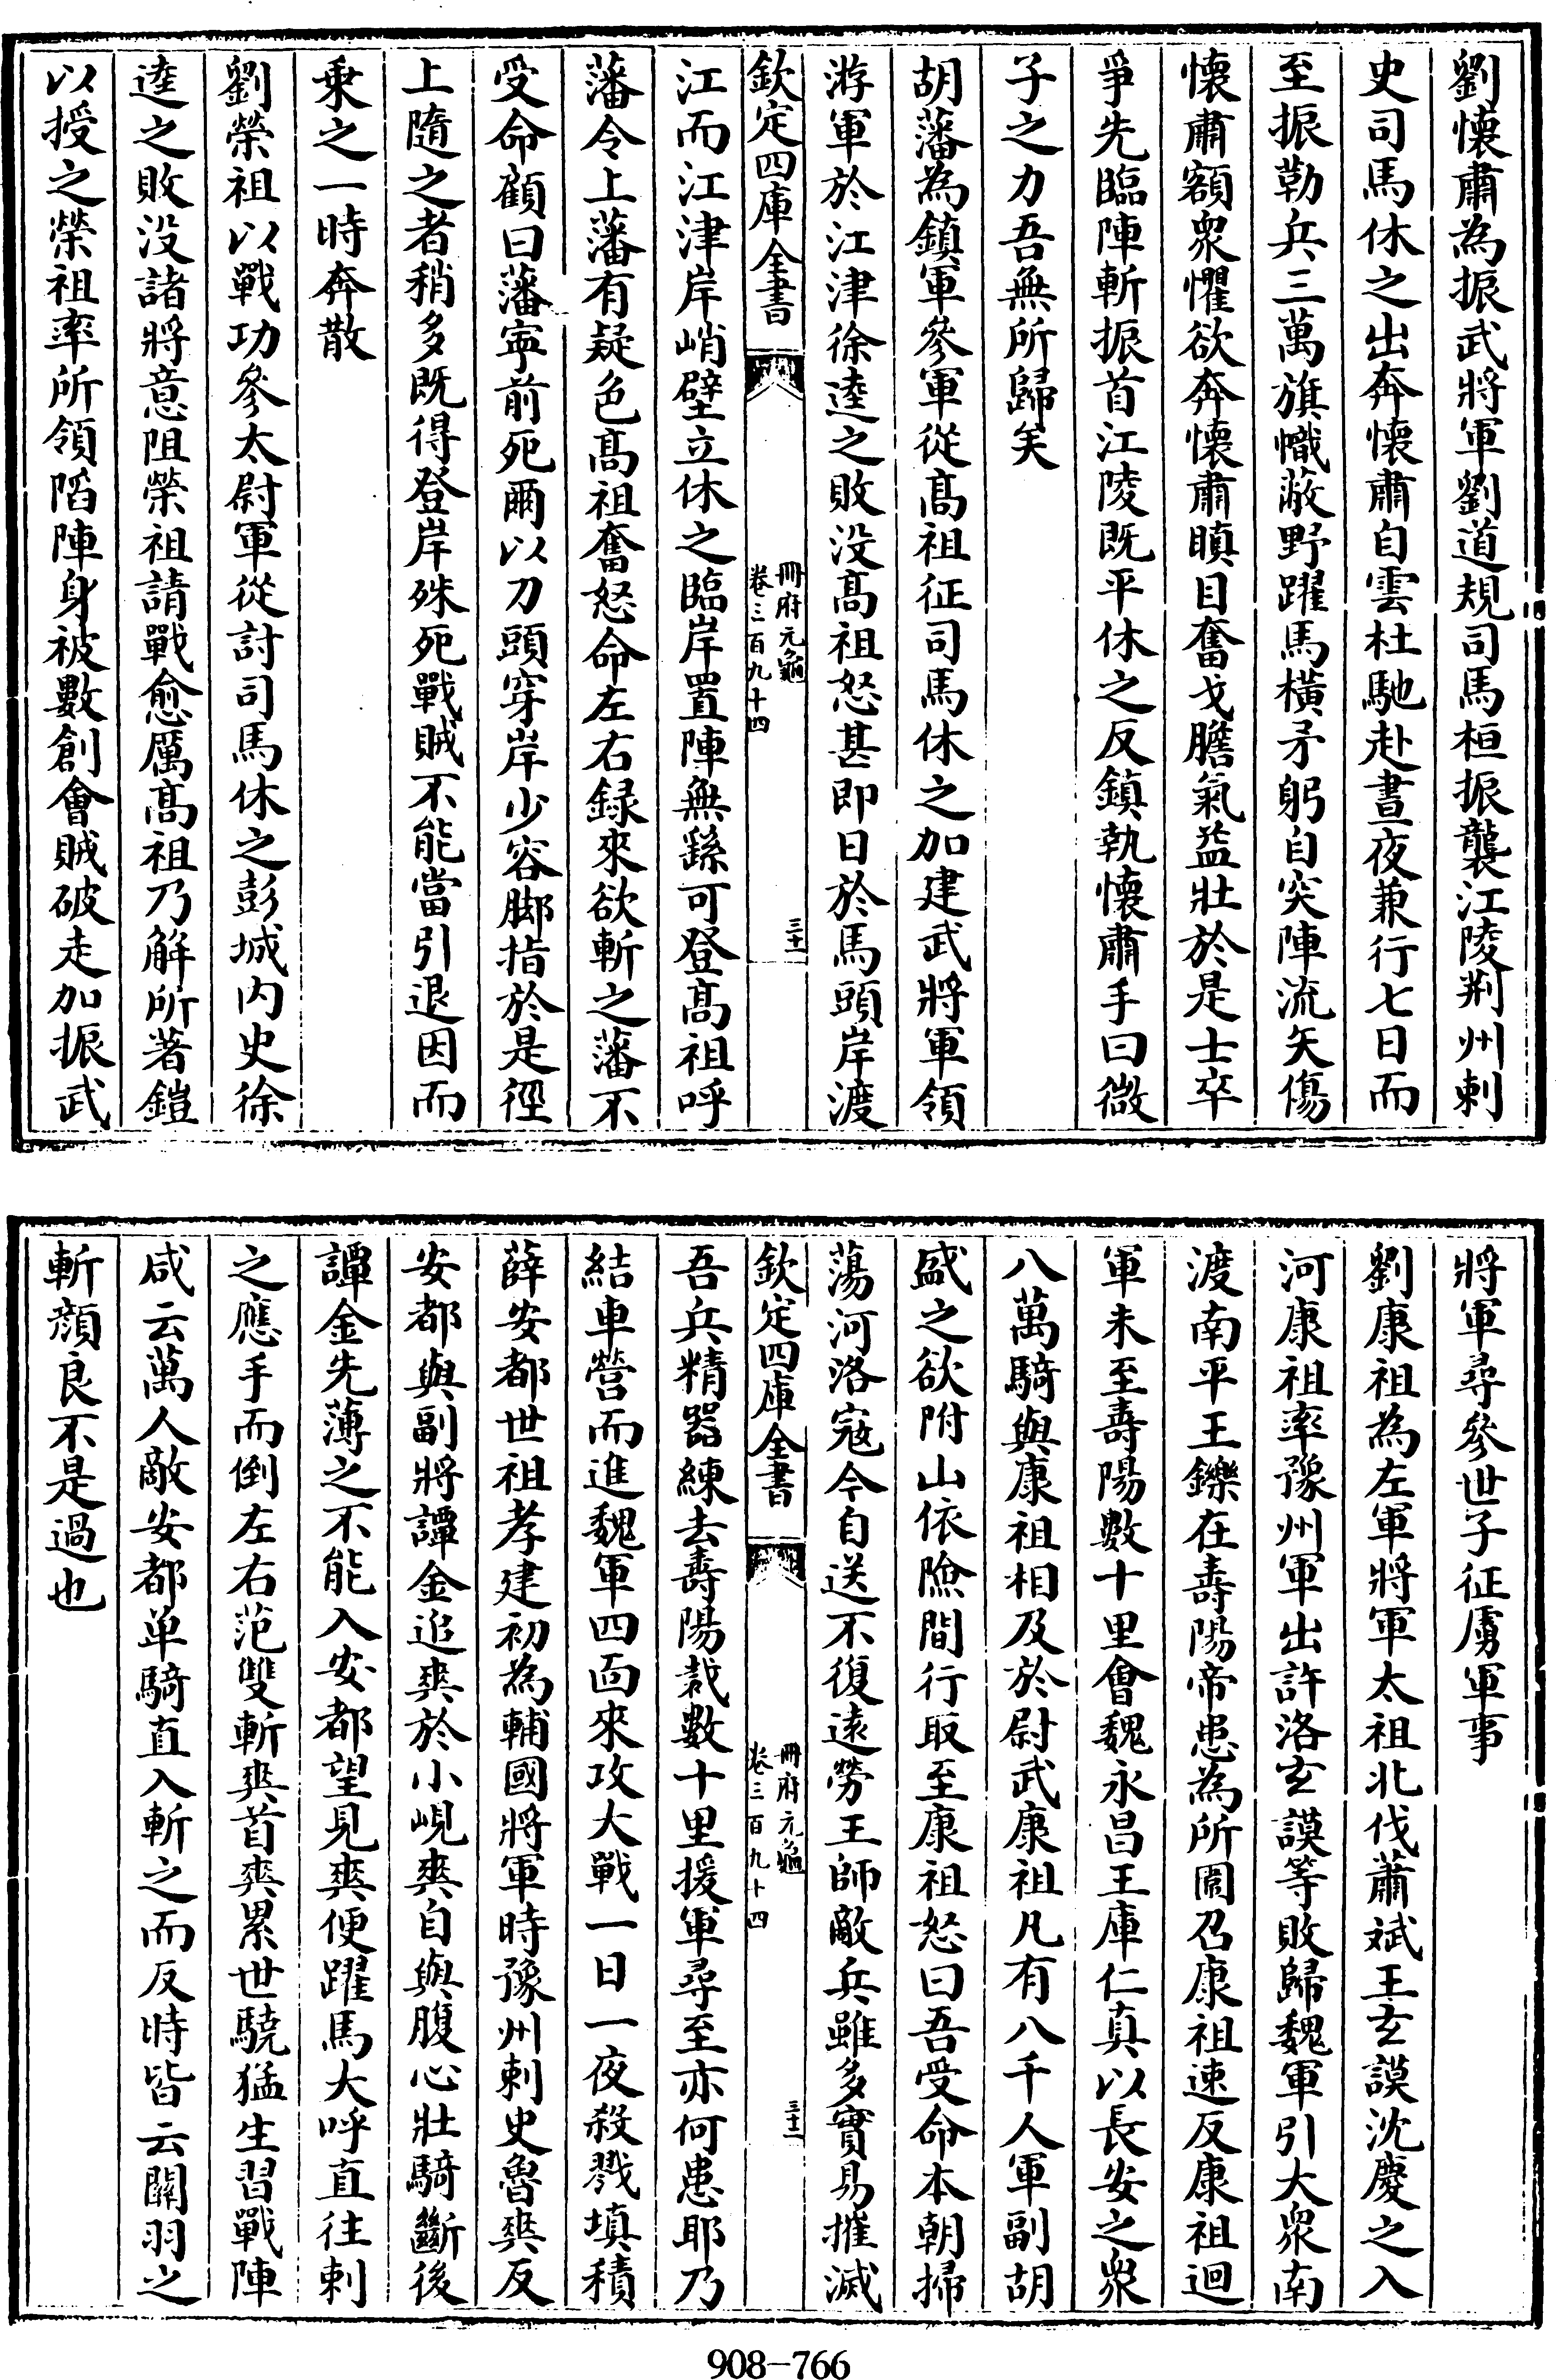 劉懷肅為振武將軍劉道規司馬桓振襲江陵荆州刺
史司馬休之出奔懷肅自雲杜馳赴晝夜兼行七日而
至振勒兵三萬旗幟蔽野躍馬橫矛躬自突陣流矢傷
懷肅額衆懼欲奔懷肅瞋目奮戈膽氣益壯於是士卒
爭先臨陣斬振首江陵既平休之反鎮執懷肅手曰微
子之力吾無所歸矣
胡藩為鎮軍參軍從髙祖征司馬休之加建武將軍領
游軍於江津徐逵之敗没髙祖怒甚即日於馬頭岸渡
欽定四庫全書
冊府元龜
卷三百九十四
三十一
江而江津岸峭壁立休之臨岸置陣無繇可登髙祖呼
藩令上藩有疑色髙祖奮怒命左右録來欲斬之藩不
受命顧曰藩寧前死爾以刀頭穿岸少容脚指於是徑
上隨之者稍多既得登岸殊死戰賊不能當引退因而
乗之一時奔散
劉榮祖以戰功參太尉軍從討司馬休之彭城内史徐
逵之敗没諸將意阻榮祖請戰愈厲髙祖乃解所著鎧
以授之榮祖率所領陷陣身被數創會賊破走加振武
將軍尋參世子征虜軍事
劉康祖為左軍將軍太祖北伐蕭斌王玄謨沈慶之入
河康祖率豫州軍出許洛玄謨等敗歸魏軍引大衆南
渡南平王鑠在壽陽帝患為所圍召康祖速反康祖迴
軍未至壽陽數十里會魏永昌王庫仁真以長安之衆
八萬騎與康祖相及於尉武康祖凡有八千人軍副胡
盛之欲附山依險間行取至康祖怒曰吾受命本朝掃
蕩河洛寇今自送不復逺勞王師敵兵雖多實易摧滅
欽定四庫全書
冊府元龜
卷三百九十四
三十二
吾兵精器練去壽陽裁數十里援軍尋至亦何患耶乃
結車營而進魏軍四面來攻大戰一日一夜殺戮填積
薛安都世祖孝建初為輔國將軍時豫州刺史魯爽反
安都與副將譚金追爽於小峴爽自與腹心壯騎斷後
譚金先薄之不能入安都望見爽便躍馬大呼直往刺
之應手而倒左右范雙斬爽首爽累世驍猛生習戰陣
咸云萬人敵安都单騎直入斬之而反時皆云關羽之
斬顔良不是過也
908-766